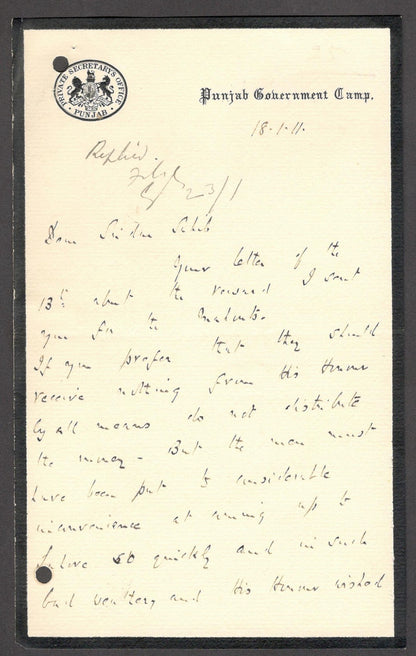 PRIVATE SECRETARY'S OFFICE
PUNJAB
Punjab Government Camp.
18-1-11.
Replied.
23/1
Dear Sirdar Sahib
Your letter of the
13th about the reward I sent
you for the
If you prefer that they should
receive nothing from His Honour
by all means do not distribute
the money - But the men must
have been put to considerable
inconvenience at coming up to
so quickly and in such
bad weather, and His Honour wished